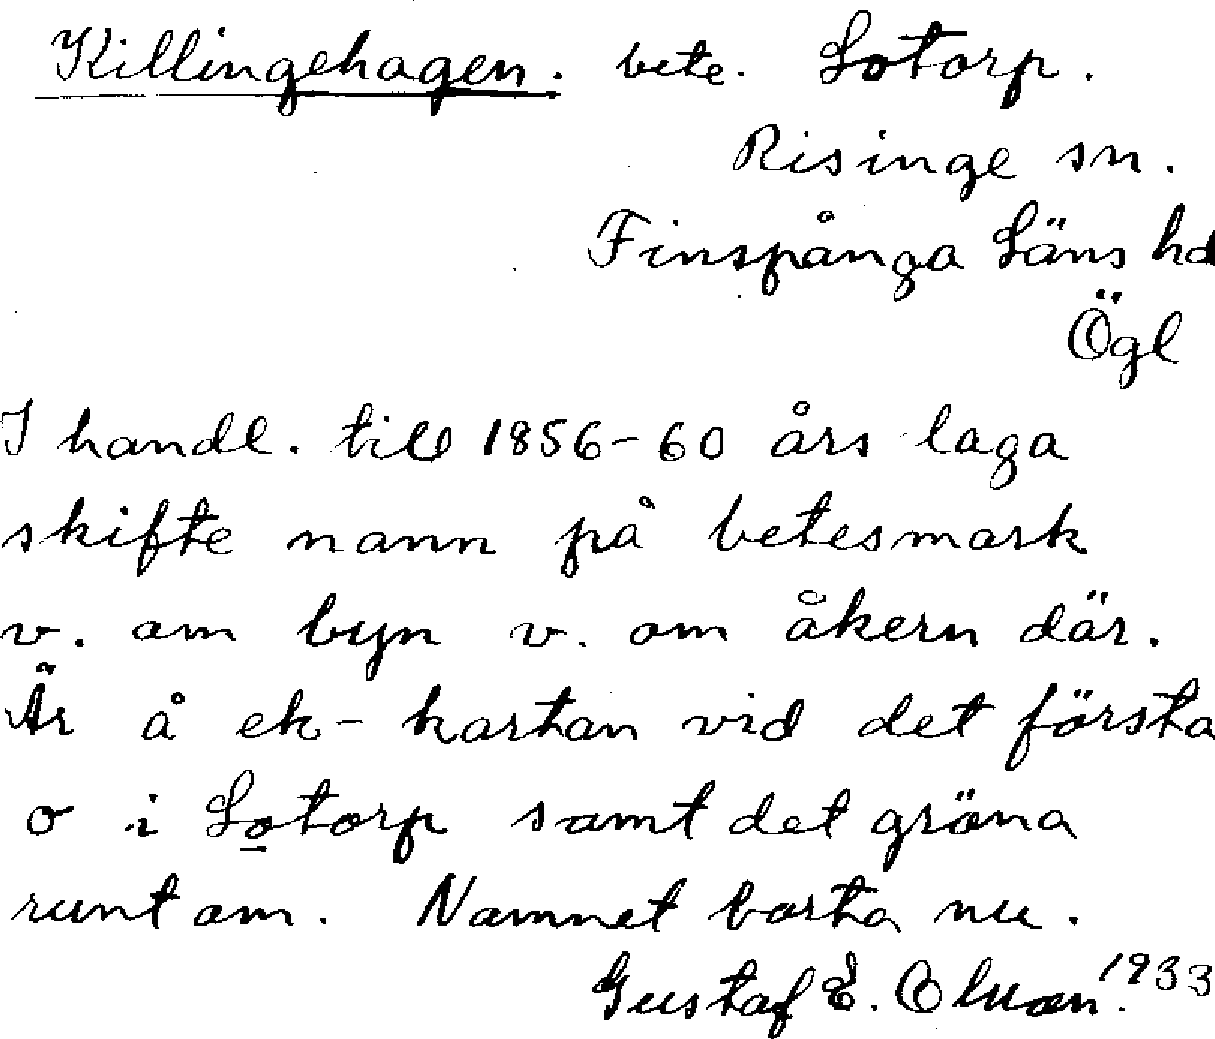 Killingehagen. bete. Lotorp.
Risinge sn.
Finspånga Läns hd
Ögl
I handl. till 1856-60 års laga
skifte namn på betesmark
v. om byn v. om åkern där.
Är å ek-kartan vid det första
o i Lotorp samt det gröna
runt om. Namnet borta nu.
Gustaf E. Olsson. 1933